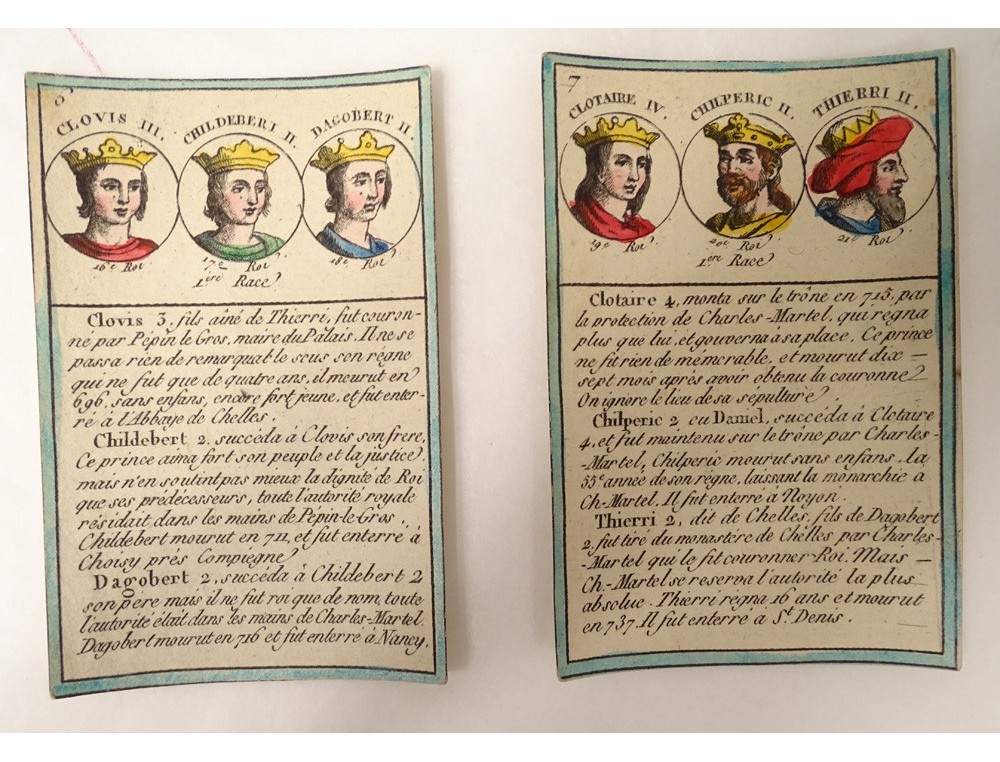 6
CLOVIS III. CHILDEBERT II. DAGOBERT II.
16e Roi. 17e Roi. 18e Roi.
1ère Race
Clovis 3, fils aîné de Thierri, fut couron-
né par Pépin le Gros, maire du Palais. Il ne se
passa rien de remarquable sous son règne
qui ne fut que de quatre ans, il mourut en
696, sans enfans, encore fort jeune, et fut enter-
ré à l'Abbaye de Chelles.
Childebert 2, succéda à Clovis son frere,
Ce prince aima fort son peuple et la justice
mais n'en soutint pas mieux la dignité de Roi
que ses prédécesseurs, toute l'autorité royale
résidait dans les mains de Pépin-le-Gros.
Childebert mourut en 711, et fut enterré à
Choisy prés Compiegne
Dagobert 2, succéda à Childebert 2
son père mais il ne fut roi que de nom, toute
l'autorité était dans les mains de Charles-Martel.
Dagobert mourut en 716 et fut enterré à Nancy.
7
CLOTAIRE IV. CHILPERIC II. THIERRI II.
19e Roi. 20e Roi. 21e Roi.
1ère Race
Clotaire 4, monta sur le trône en 715, par
la protection de Charles-Martel, qui régna
plus que lui, et gouverna à sa place. Ce prince
ne fit rien de mémorable, et mourut dix —
sept mois après avoir obtenu la couronne
On ignore le lieu de sa sépulture.
Chilperic 2 ou Daniel, succéda à Clotaire
4, et fut maintenu sur le trône par Charles-
-Martel, Chilperic mourut sans enfans. La
55e année de son règne, laissant la monarchie à
Ch-Martel. Il fut enterré à Noyon.
Thierri 2, dit de Chelles, fils de Dagobert
2, fut tiré du monastère de Chelles par Charles-
-Martel qui le fit couronner Roi. Mais —
Ch.-Martel se reserva l'autorité la plus
absolue. Thierri régna 16 ans et mourut
en 737. Il fut enterré à St. Denis.